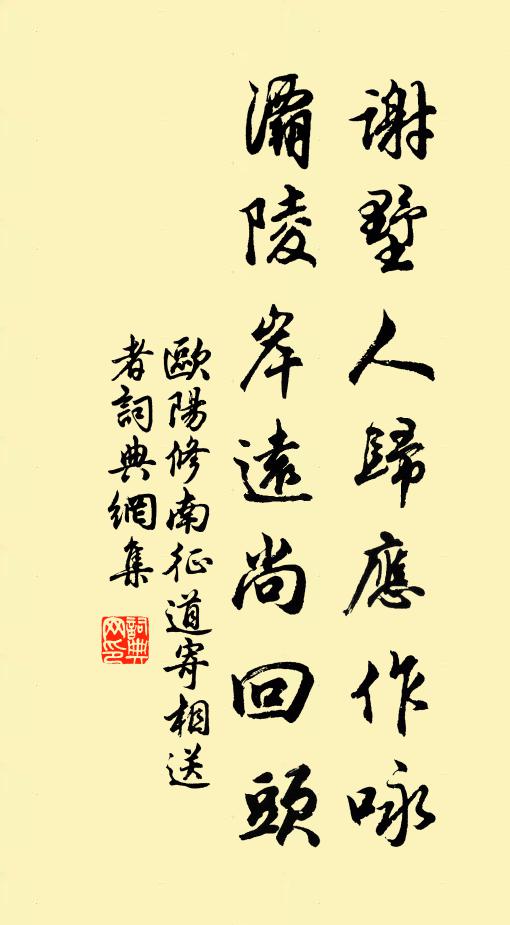 謝墅人歸應作咏
灞陵岸遠尚回頭
歐陽修南征道寄相送
者詞典網集
詞典网印